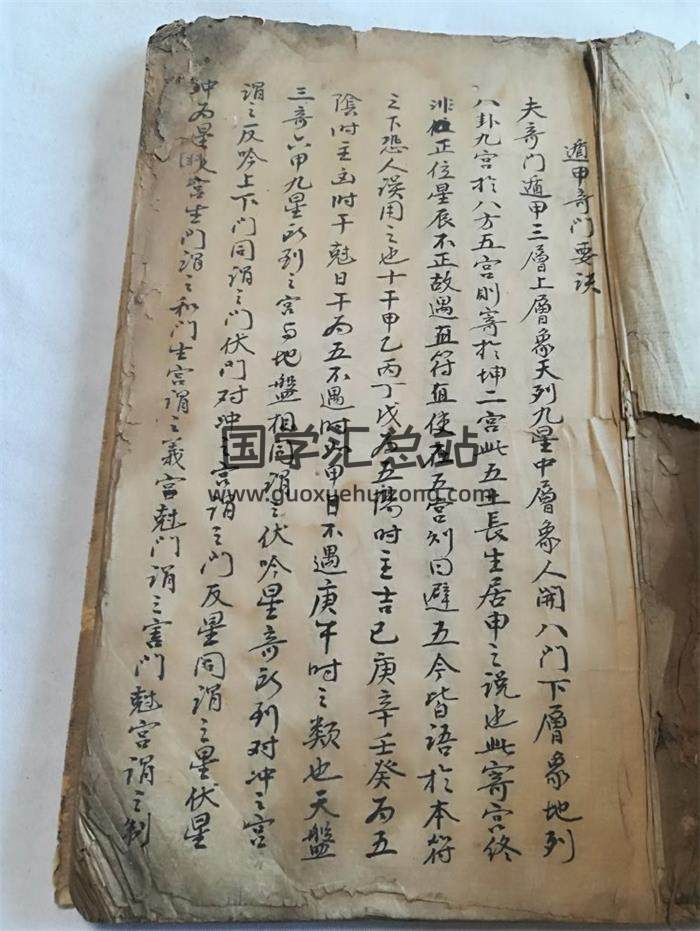 遁甲奇門要訣
夫奇門遁甲三層上層象天列九星中層象人開八門下層象地列
八卦九宮於八方五宮則寄於坤二宮此五土長生居申之說也此寄宮終
非正位星辰不正故遇直符直使在五宮則曰避五今皆語於本符
之下恐人误用之也十干甲乙丙丁戊為五陽时主吉已庚辛壬癸為五
陰时主凶时干尅日干為五不遇时如甲日不遇庚午时之類也天盤
三奇六甲九星所到之宮与地盤相同謂之伏吟星奇所到对冲之宮
謂之反吟上下門同謂之門伏門对冲之宮謂之門反星同謂之星伏星
冲為星反宮生門謂之和門生宮謂之義宮尅門謂之害門尅宮謂之制
国学汇总站
www.guoxuehuizong.com